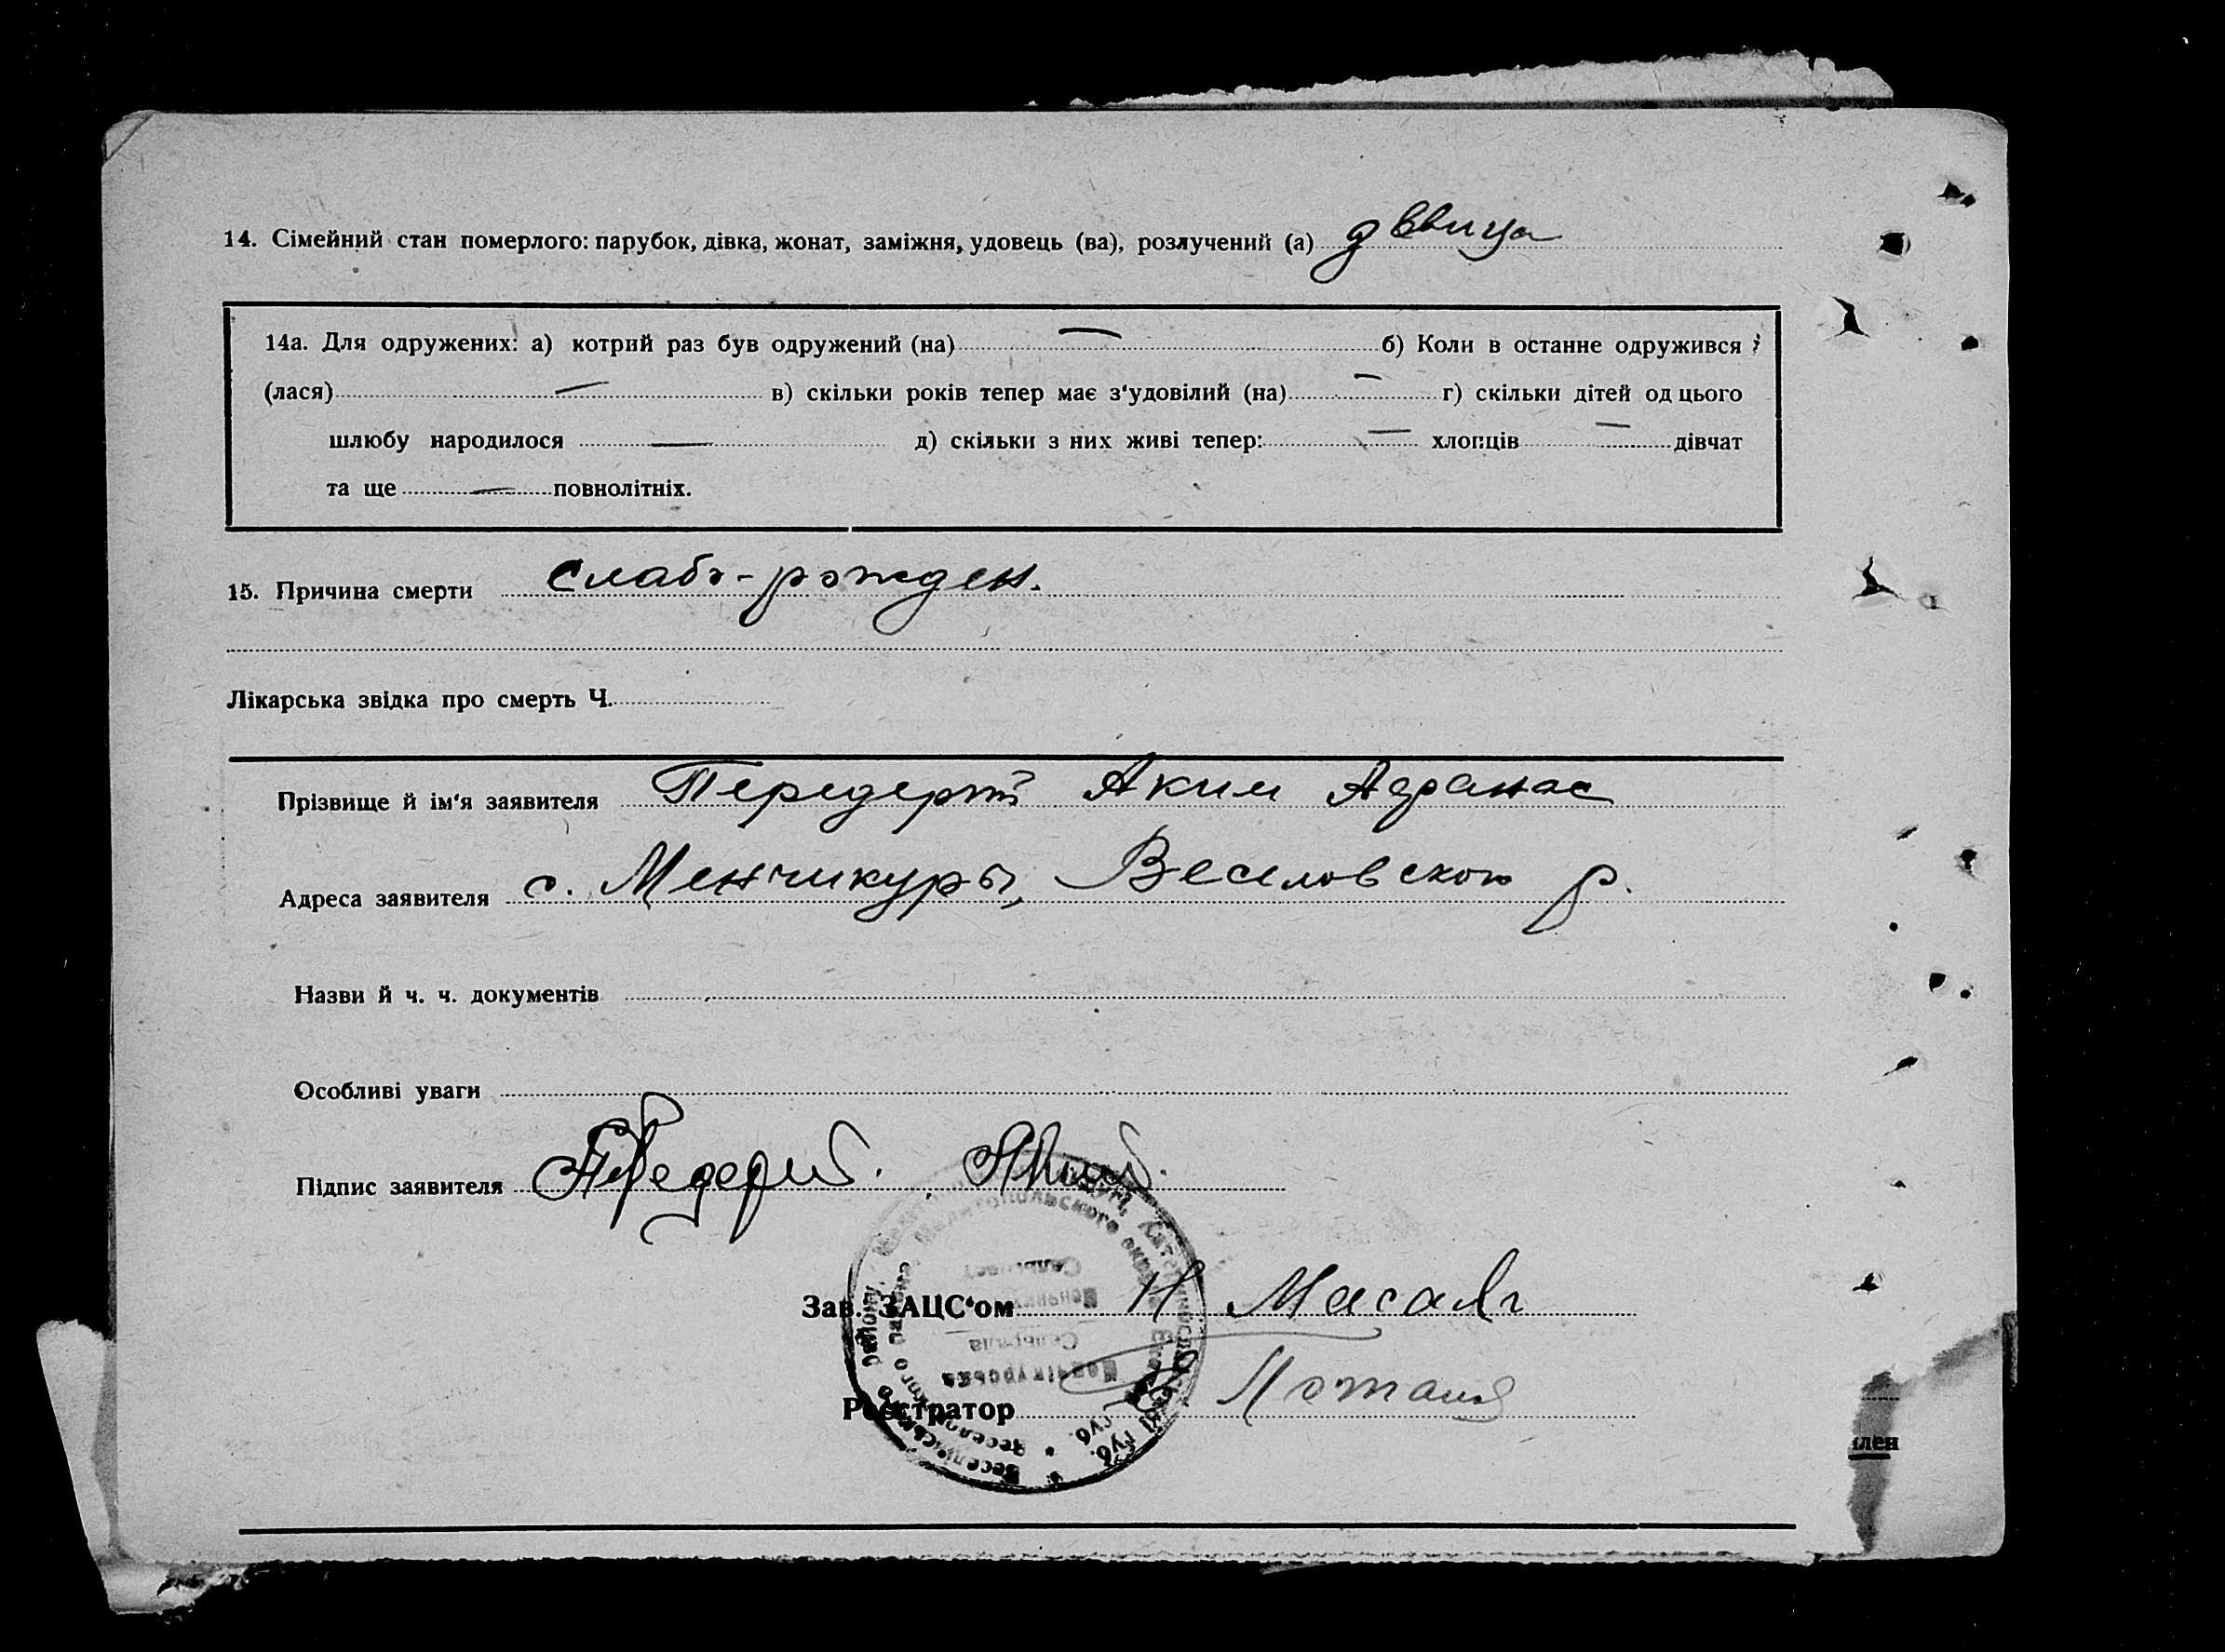 14. Сімейний стан померлого: парубок, дівка, жонат, заміжня, удовець (ва), розлучений (а) дввица
14а. Для одружених: а) котрий раз був одружений (на) — б) Коли в останне одружився
(лася) — в) скільки років тепер має з‘удовілий (на) — г) скільки дітей од цього
шлюбу народилося — д) скільки з них живі тепер: — хлопців — дівчат
та ще — повнолітніх.
15. Причина смерти слабо-рожден.
Лікарська звідка про смерть Ч.
Прізвище й ім‘я заявителя Передерій Аким Афанас
Адреса заявителя с. Менчикуры, Веселовского р.
Назви й ч. ч. документів
Особливі уваги
Підпис заявителя Передерий.
Зав. ЗАЦС‘ом Н
Реєстратор
лен